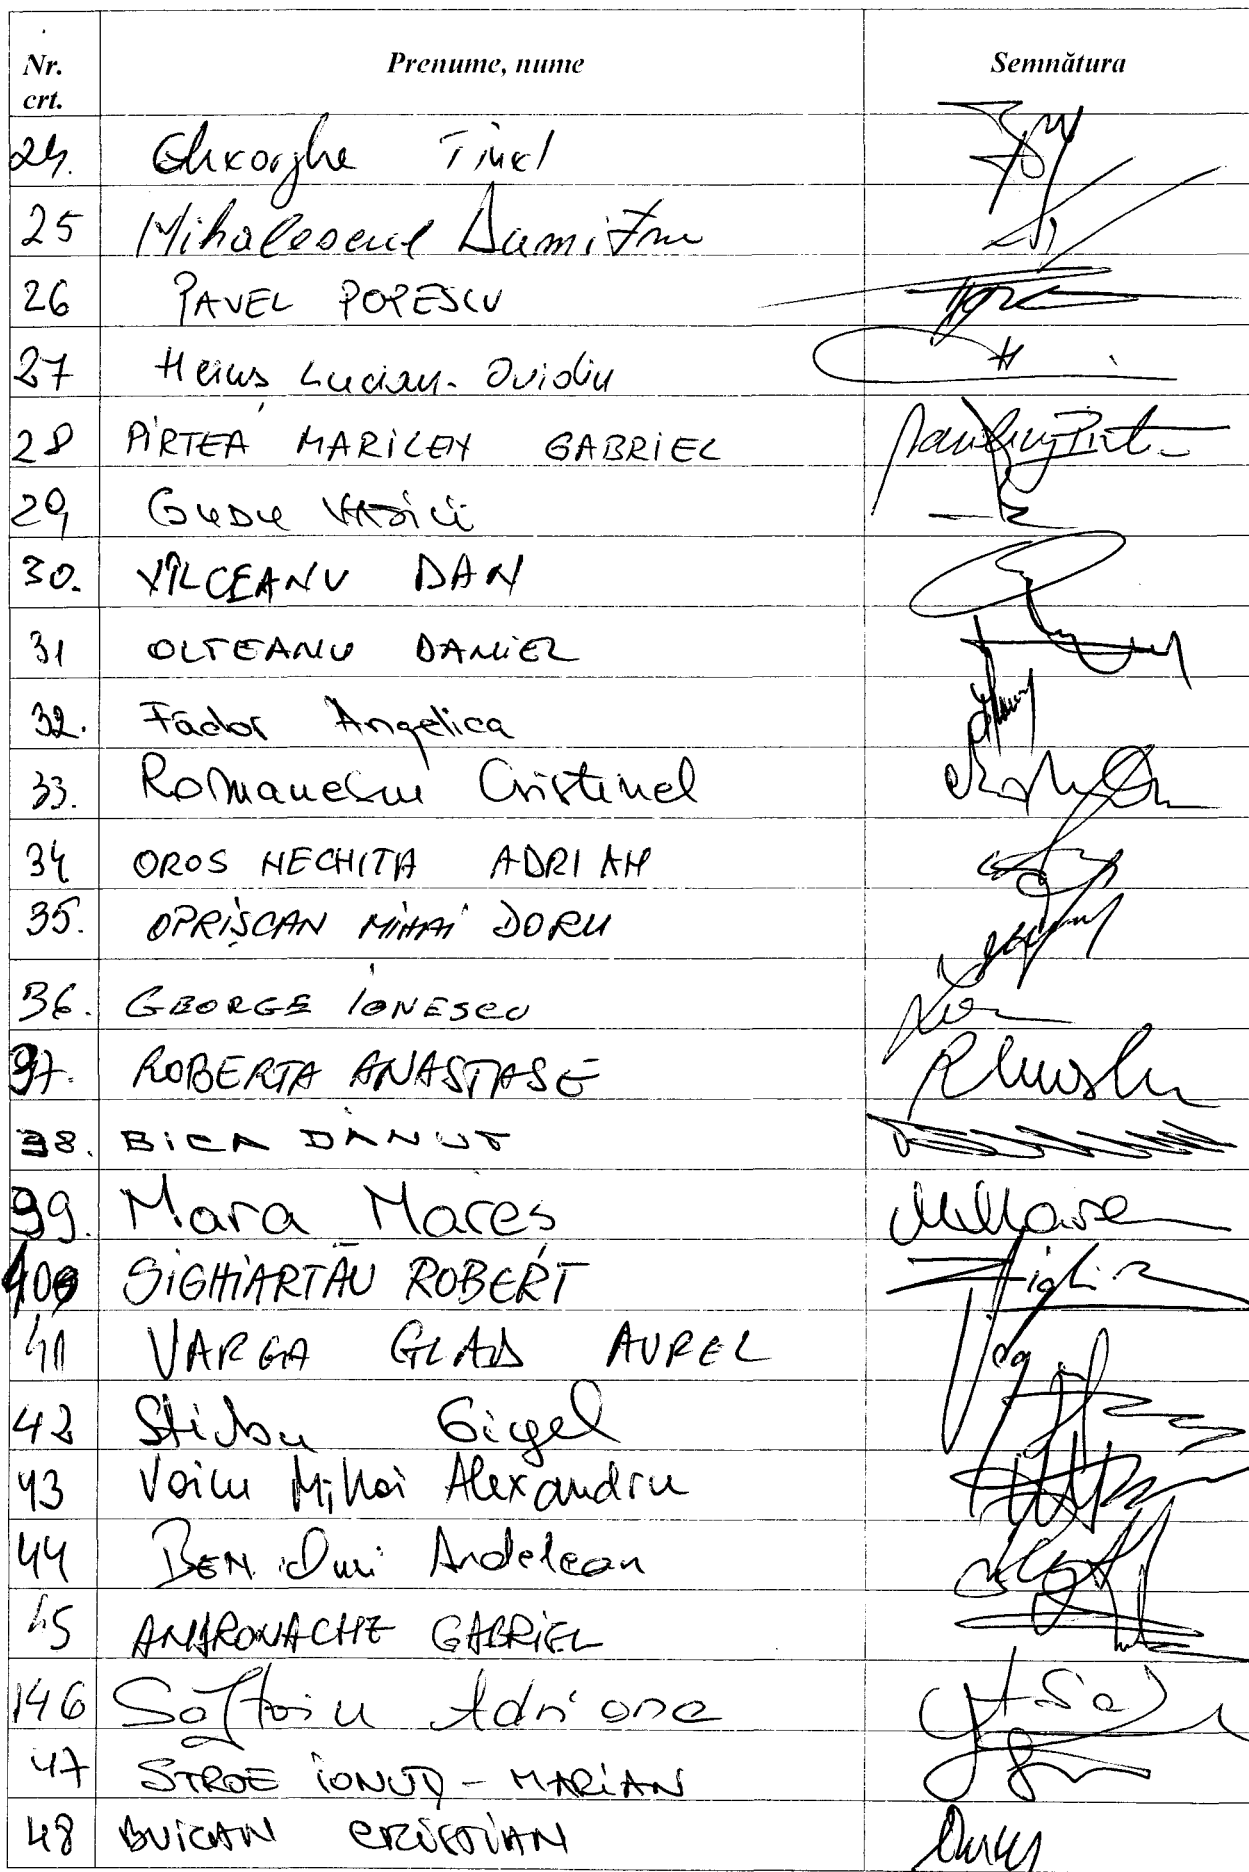 Nr. crt. Prenume, nume Semnătura
24. Gheorghe Tinel
25 Mihalescul Dumitru
26 PAVEL POPESCU
27 Heius Lucian-Ovidiu
28 PÎRTEA MARILEN GABRIEL
29 GUDU VASILE
30. VÎLCEANU DAN
31 OLTEANU DANIEL
32. Fădor Angelica
33. Romanescu Cristinel
34 OROS NECHITA ADRIAN
35. OPRIȘCAN MIHAI DORU
36. GEORGE IONESCU
37. ROBERTA ANASTASE
38. BICA DĂNUȚ
39. Mara Mareș
40 SIGHIARTĂU ROBERT
41 VARGA GLAD AUREL
42 Știrbu Gigel
43 Voicu Mihai Alexandru
44 BEN Oni Ardelean
45 ANDRONACHE GABRIEL
46 Săftoiu Adriana
47 STROE IONUȚ - MARIAN
48 BUICAN CRISTIAN